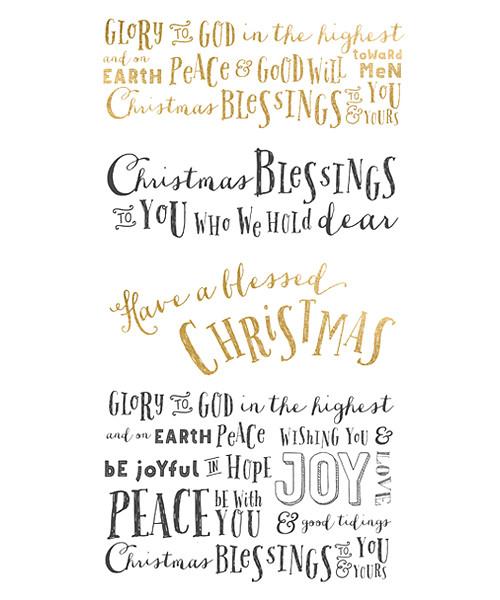 GLORY TO GOD in the highest
and on EARTH PEACE & GOOD WILL toward MEN
Christmas BLESSINGS TO YOU & YOURS
Christmas BLESSINGS
TO YOU WHO WE HOLD dear
Have a blessed
CHRISTMAS
GLORY TO GOD in the highest
and on EARTH PEACE
WISHING YOU &
bE joyful IN HOPE
JOY LOVE
PEACE bE With YOU
& good tidings
Christmas BLESSINGS TO YOU & YOURS